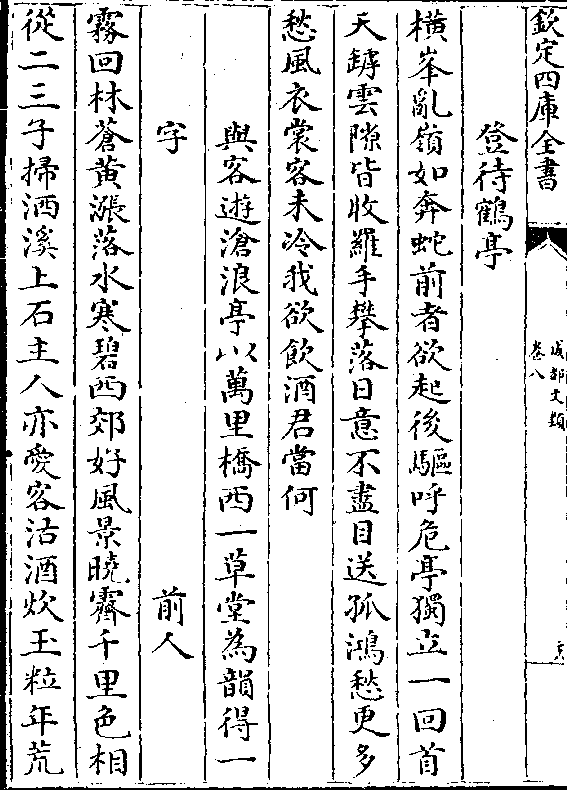 欽定四庫全書
成都文類
卷八
登待鶴亭
橫峯亂嶺如奔蛇前者欲起後驅呼危亭獨立一回首
天罅雲隙皆收羅手攀落日意不盡目送孤鴻愁更多
愁風衣裳客未冷我欲飲酒君當何
與客遊滄浪亭以萬里橋西一草堂為韻得一
字　前人
霧回林蒼黄漲落水寒碧西郊好風景曉霽千里色相
從二三子掃洒溪上石主人亦愛客沽酒炊玉粒年荒